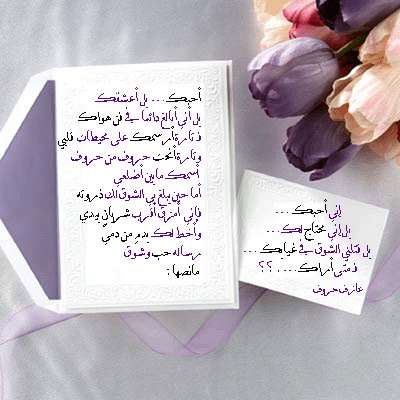 أحبك ... بل أعشقك
بل أني أبالغ دائما في فن هواك
فتارة أرسمك على محيطات قلبي
وتارة أنحت حروف من حروف
أسمك مابين أضلعي
أما حين يبلغ بي الشوق لك ذروته
فإني أمزق أقرب شريان بيدي
وأخط لك بدم من دمي
رساله حب وشوق
مانصها :
إني أحبك ...
بل إني محتاج لك ...
بل قتلني الشوق في غيابك ...
فمتى أراك .... ؟؟
عازف حروف